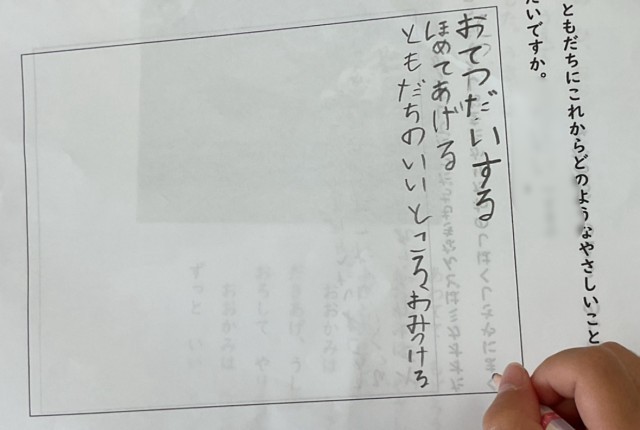 ともだちにこれからどのようなやさしいこと
たいですか。
おてつだいする
ほめてあげる
ともだちのいいところおみつける